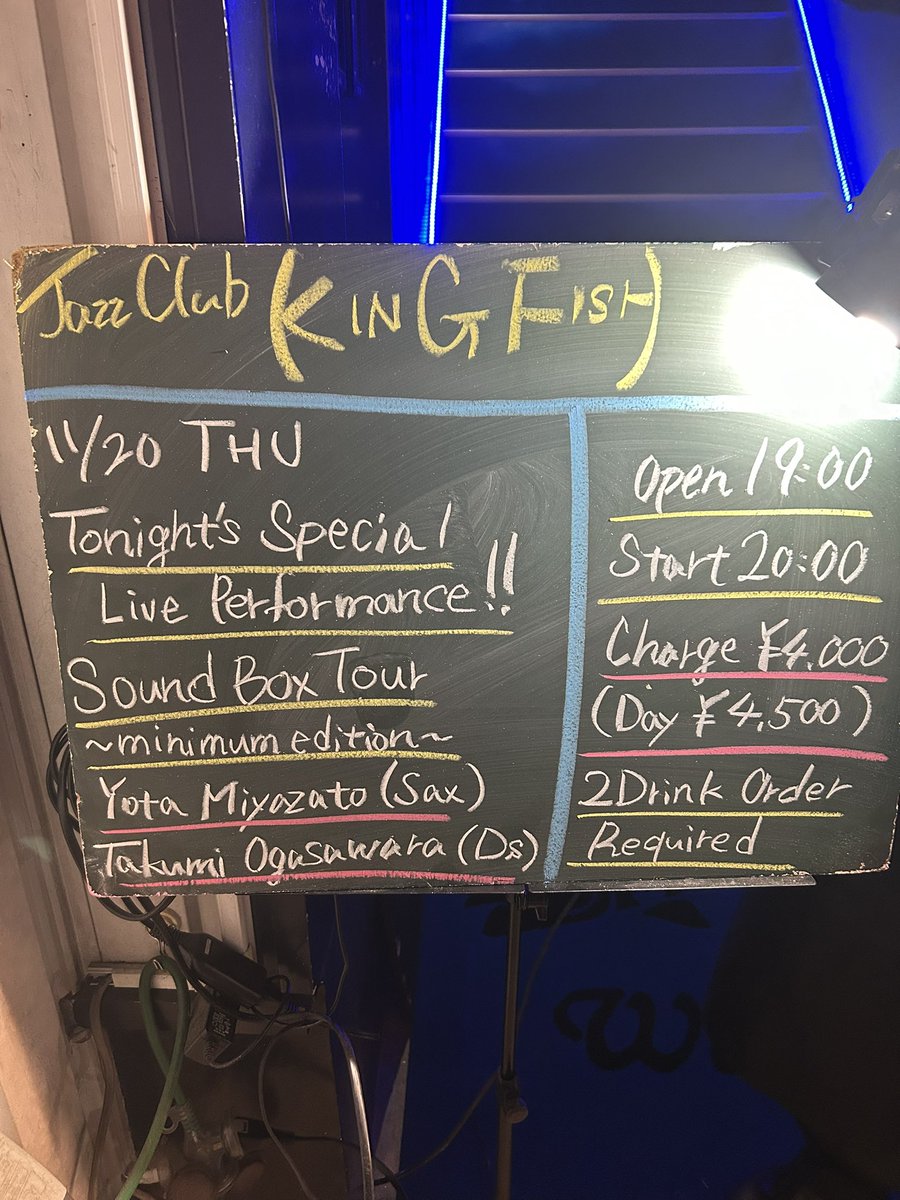 Jazz Club (KINGFISH)
11/20 THU
Tonight's Special
Live Performance!!
Sound Box Tour
~minimum edition~
Yota Miyazato (Sax)
Takumi Ogasawara (Ds)
Open 19:00
Start 20:00
Charge ¥4,000
(Day ¥4,500)
2Drink Order
Required